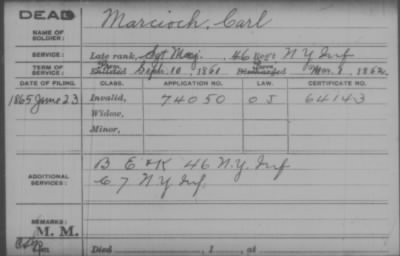 DEAD
Marcioch, Carl
NAME OF SOLDIER:
SERVICE: Late rank, Sgt Maj, 46 Reg't N Y Inf
TERM OF SERVICE: Enlisted Sept. 10, 1861 Discharged Nov. 1, 1862.
DATE OF FILING. CLASS. APPLICATION NO. LAW. CERTIFICATE NO.
1865 June 23 Invalid, 74050 O S 64143
Widow,
Minor,
B E & K 46 N.Y. Inf
ADDITIONAL SERVICES: C 7 N.Y. Inf.
REMARKS:
M. M.
Died , 1 , at